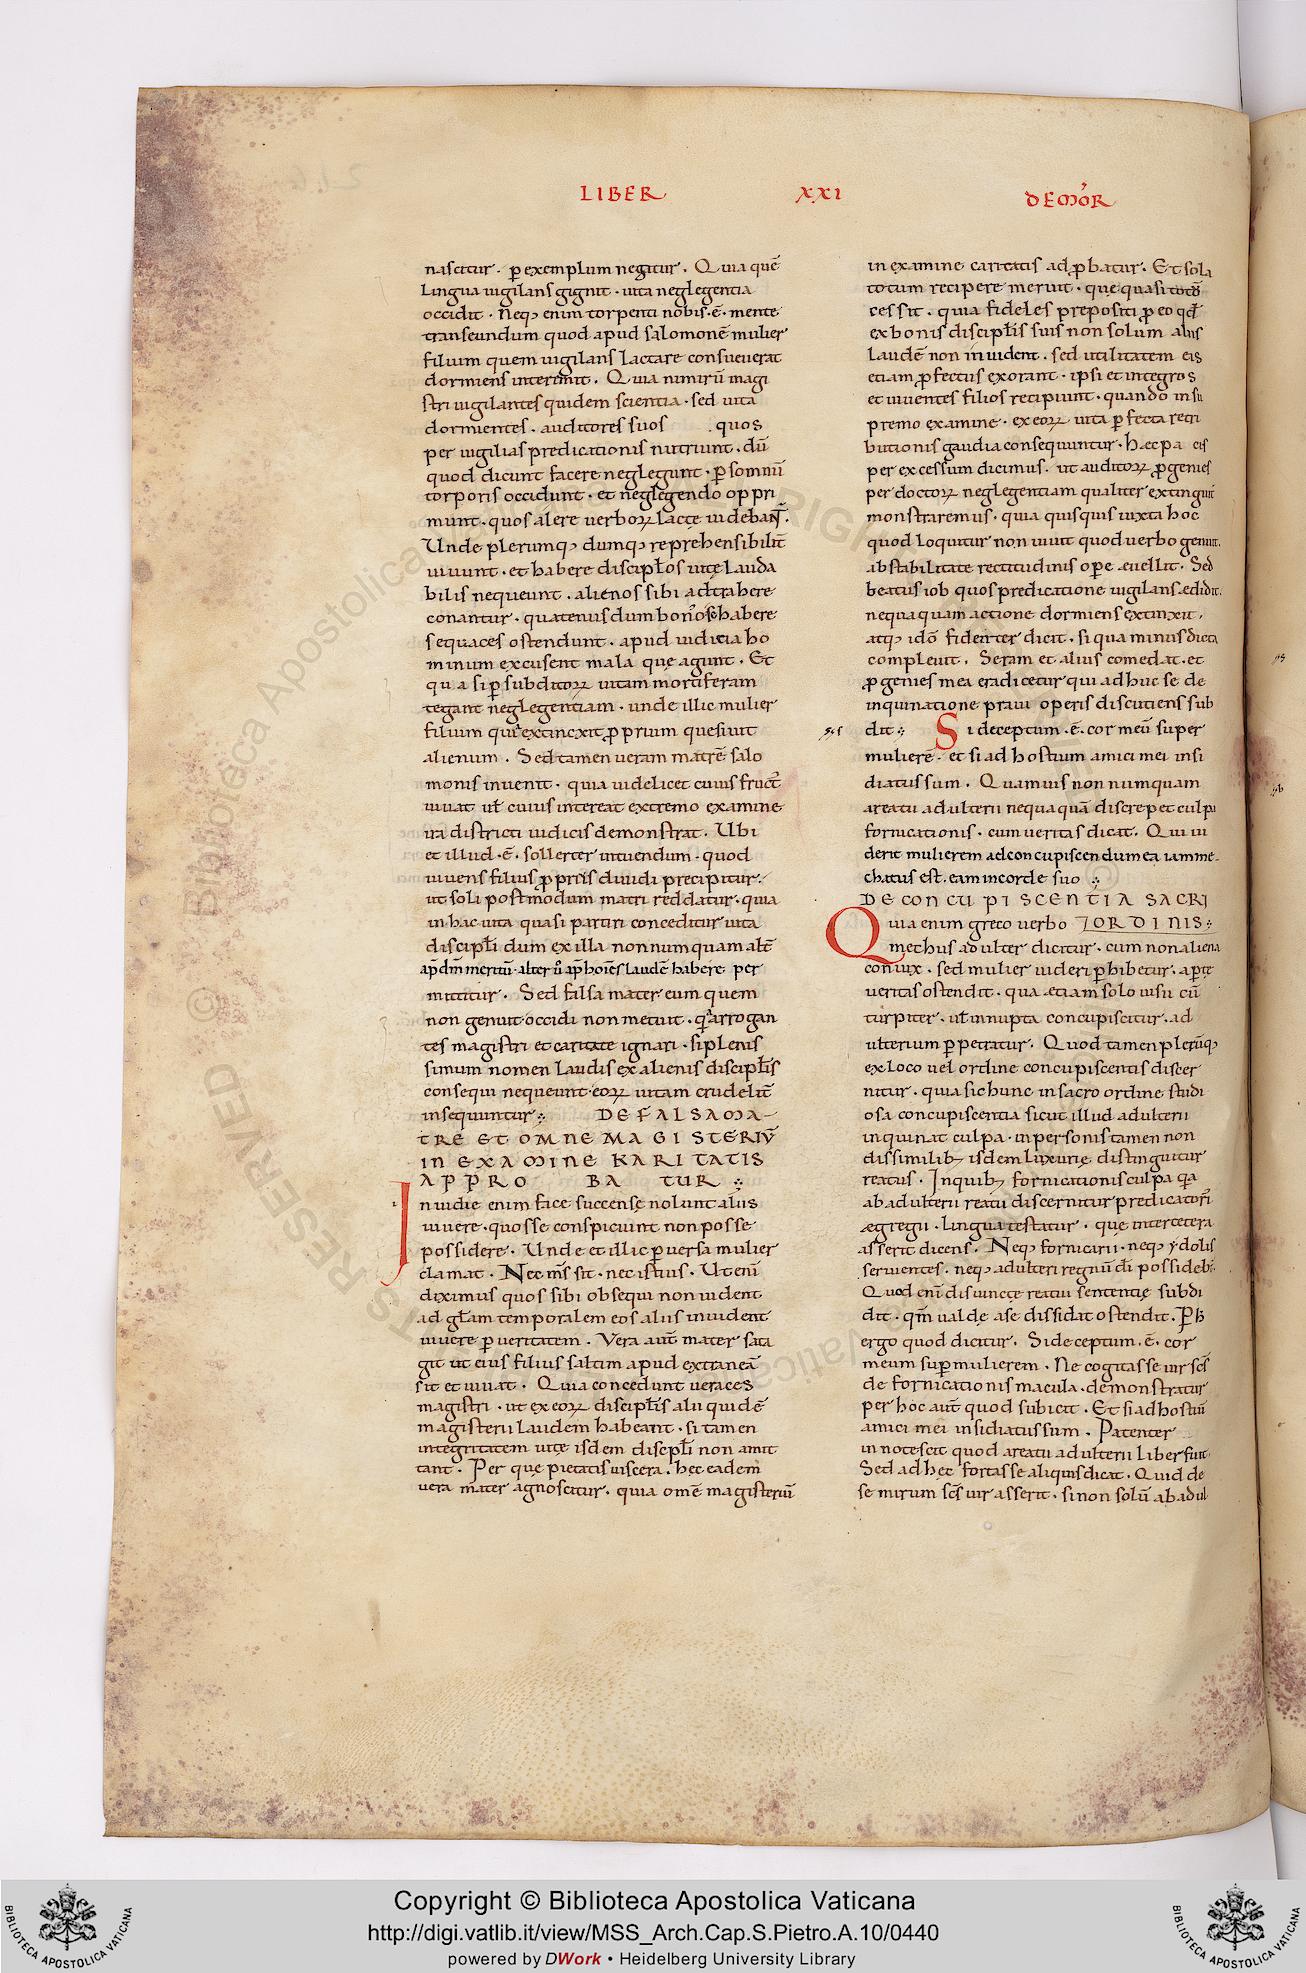 LIBER XXI DE MOR̄
nascitur . ꝑ exemplum negitur . Quia quē
lingua uigilans gignit . uita neglegentia
occidit . Neq; enim torpenti nobis . ē . mente
transeundum quod apud salomonē mulier
filium quem uigilans lactare consueuerat
dormiens interemit . Quia nimirū magi
stri uigilantes quidem scientia . sed uita
dormientes . auditores suos quos
per uigilias predicationis nutriunt . dū
quod dicunt facere neglegunt . ꝑ somnū
torporis occidunt . et neglegendo oppri
munt . quos alere uerboꝝ lacte uidebant̄ .
Unde plerumq; dumq; reprehensibilit̄
uiuunt . et habere discipl̄os uitę lauda
bilis nequeunt . alienos sibi adtrahere
conantur . quatenus dum bonos se habere
sequaces ostendunt . apud iudicia ho
minum excusent mala que agunt . Et
quasi ꝑ subditoꝝ uitam mortiferam
tegant neglegentiam . unde illic mulier
filium quē extinxit ꝓprium quesiuit
alienum . Sed tamen ueram matrē salo
monis inuenit . quia uidelicet cuius fruct̄
uiuat ut̄ cuius intereat extremo examine
ira districti iudicis demonstrat . Ubi
et illud . ē . sollerter intuendum . quod
uiuens filius ꝓ prius diuidi precipitur .
ut soli postmodum matri reddatur . quia
in hac uita quasi partiri conceditur uita
discipl̄i dum ex illa nonnumquam alt̄e
ap̄ dm̄ meritū . alter ū ap̄ hoīes laudē habere . per
mittitur . Sed falsa mater eum quem
non genuit occidi non metuit . q̄a arrogan
tes magistri et caritate ignari . si plenis
simum nomen laudis ex alienis discipl̄is
consequi nequeunt . eoꝝ uitam crudelit̄
insequuntur . DE FALSA MA
TRE ET OMNE MAGISTERIŪ
IN EXAMINE KARITATIS
APPROBATUR .
Inuidie enim face succensę nolunt aliis
uiuere . quos se conspiciunt non posse
possidere . Unde et illic ꝑuersa mulier
clamat . Nec m̄s sit . nec istius . Ut enī
diximus quos sibi obsequi non uident
ad gl̄am temporalem eos aliis inuident
uiuere ꝑ ueritatem . Vera aut̄ mater sata
git ut eius filius saltim apud extraneā
sit et uiuat . Quia concedunt ueraces
magistri . ut ex eoꝝ discipl̄is alii quidē
magisterii laudem habeant . si tamen
integritatem uitę isdem discipl̄i non amit
tant . Per que pietatis uiscera . hec eadem
uera mater agnoscitur . quia omē magisteriū
in examine carreatis adꝓbatur . Et sola
totum recipere meruit . que quasi totū
cessit . quia fideles prepositi ꝓ eo qd̄
ex bonis discipl̄is suis non solum aliis
laudē non inuident . sed utilitatem eis
etiam ꝓfectus exorant . ipsi et integros
et uiuentes filios recipiunt . quando in su
premo examine . ex eoꝝ uita ꝑfecta retri
butionis gaudia consequuntur . Haec pa cis
per excessum dicimus . ut auditoꝝ ꝓgenies
per doctoꝝ neglegentiam qualiter extinguit̄
monstraremus . quia quisquis iuxta hoc
quod loquitur non uiuit quod uerbo genuit .
ab stabilitate rectitudinis oꝑe euellit . Sed
beatus iob quos predicatione uigilans ædidit .
nequaquam actione dormiens extinxit .
atq; idō fidenter dicit . si qua minus dicta
compleuit . Seram et alius comedat . et
ꝓgenies mea eradicetur qui adhuc se de
inquinatione praui operis discutiens sub
dit : Si deceptum . ē . cor meū super
mulierē . et si ad hostium amici mei insi
diatus sum . Quamuis non numquam
a reatu adulterii nequaquā discrepet culpa
fornicationis . cum ueritas dicat . Qui ui
derit mulierem ad concupiscendum ea iam me
chatus est . eam in corde suo :
DE CONCUPISCENTIA SACRI
Quia enim greco uerbo ORDINIS :
mechus adulter dicitur . cum non aliena
coniux . sed mulier uideri ꝑhibetur . aꝑte
ueritas ostendit . qua ætiam solo uisu cū
turpiter . ut̄ innupta concupiscitur . ad
ulterium ꝑpetratur . Quod tamen plerūq;
ex loco uel ordine concupiscentis discer
nitur . quia sic hunc in sacro ordine studi
osa concupiscentia sicut illud adulterii
inquinat culpa . in personis tamen non
dissimilib; isdem luxurię distinguitur
reatus . In quib; fornicationis culpa q̄a
ab adulterii reatu discernitur predicatoris
ægregii . lingua testatur . que inter cetera
asserit dicens . Neq; fornicarii . neq; ydolis
seruientes . neq; adulteri regnū dī possideb̄ .
Quod enī disiuncte reatui sententię subdi
dit . qm̄ ualde a se dissidat ostendit . Ꝑ h̄
ergo quod dicitur . Si deceptum . ē . cor
meum suꝑ mulierem . Ne cogitasse uir scs̄
de fornicationis macula . demonstratur
per hoc aut̄ quod subicit . Et si ad hostiū
amici mei insidiatus sum . Patenter
innotescit quod a reatu adulterii liber fuit .
Sed ad hęc fortasse aliquis dicat . Quid de
se mirum scs̄ uir asserit . si non solū ab adul
Copyright © Biblioteca Apostolica Vaticana
http://digi.vatlib.it/view/MSS_Arch.Cap.S.Pietro.A.10/0440
powered by DWork • Heidelberg University Library